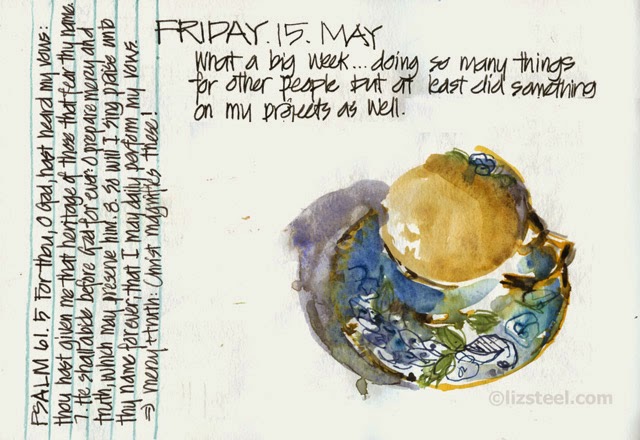 FRIDAY. 15. MAY
What a big week... doing so many things
for other people but at least did something
on my projects as well.
PSALM 61. 5 For thou, O God, hast heard my vows:
thou hast given me that heritage of those that fear thy name.
7. He shall abide before God for ever: O prepare mercy and
truth, which may preserve him. 8. So will I sing praise unto
thy name for ever, that I may daily perform my vows.
⇒ mercy + truth: Christ magnifies these!
©lizsteel.com